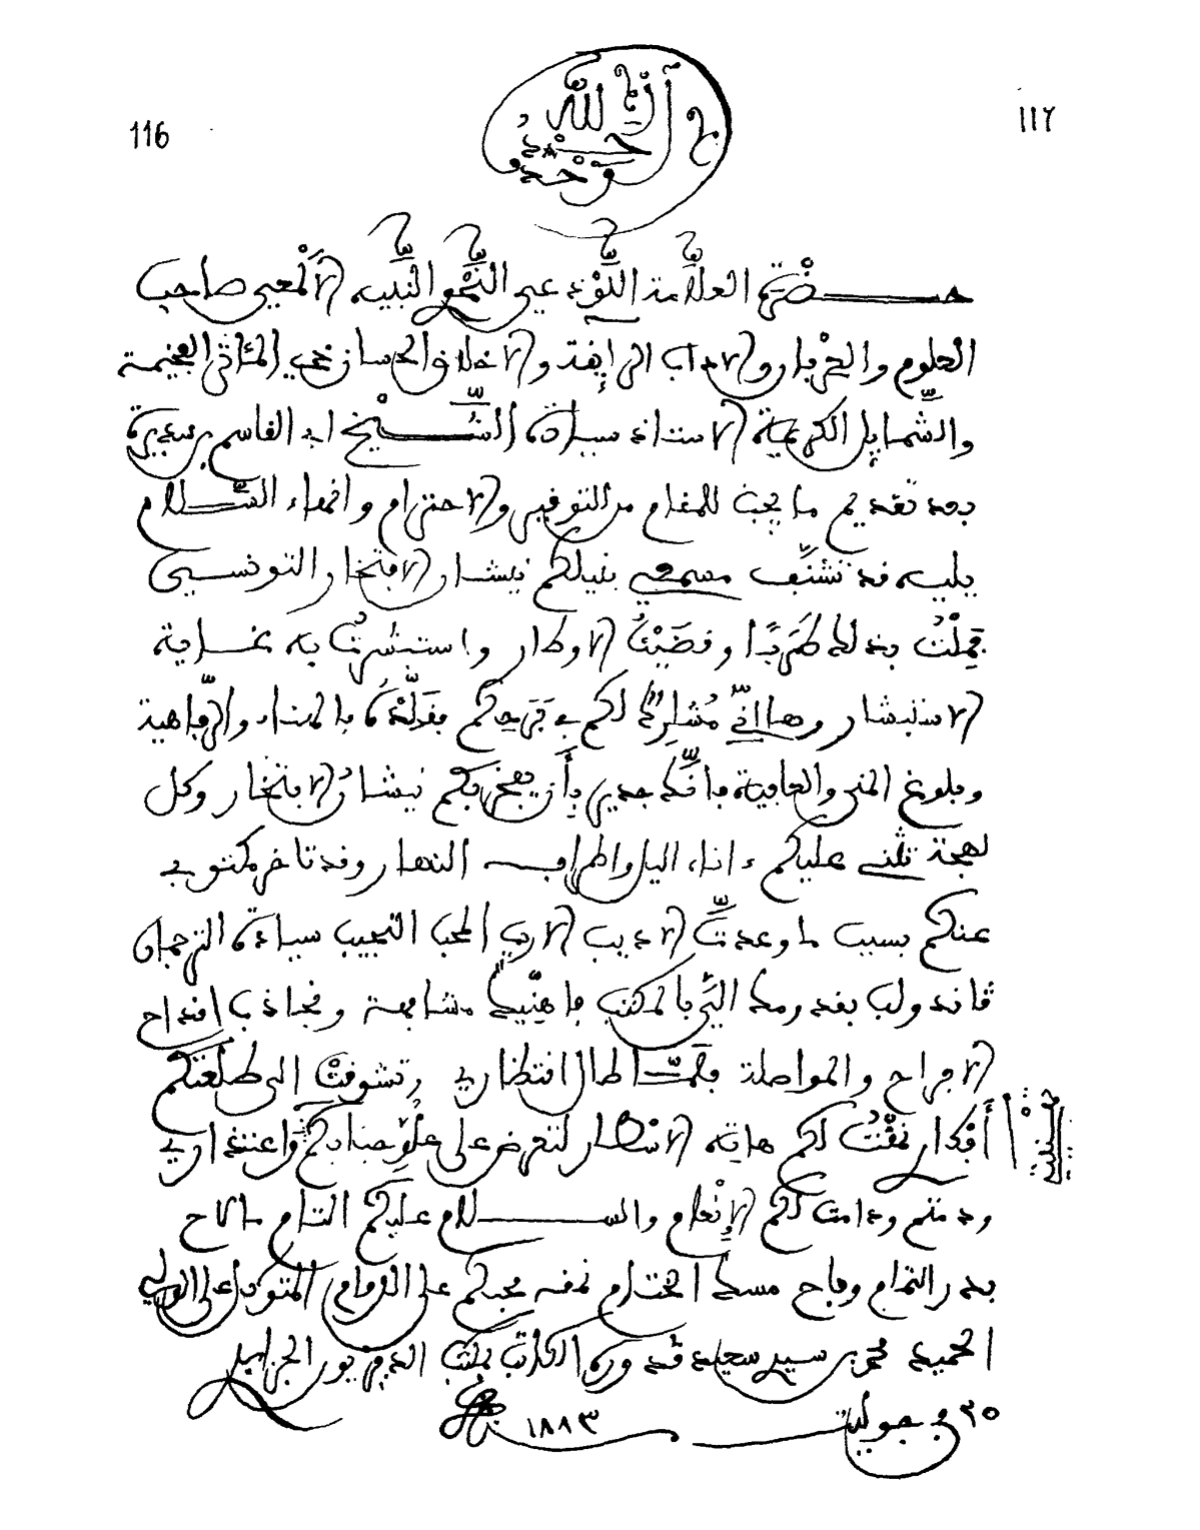 116
١١٦
الحمد لله وحده
حضرة العلامة اللوذعي النحو النبيه الألمعي صاحب
العلوم والاداب الرايقة والاخلاق الحسان المئاثر
والشمايل الكريمة الاستاذ سيادة الشيخ ابو القاسم بن سديرة
بعد تقديم ما يجب للمقام من التوفير والاحترام وانهاء السلام
يليه قد تشنف مسمعي بنيلكم نيشان الافتخار التونسي
فملت بذلك طربا وقضيت الاوطار واستبشرت به غاية
الاستبشار وها اني مشارك لكم في فرحكم بالهناء والرفاهية
وبلوغ المنى والعافية فانك جدير بأن يفخر بكم نيشان الافتخار وكل
لهجة تثني عليكم ءاناء اليل واطراف النهار وقد تاخر مكتوبي
عنكم بسبب ما وعدت الاديب الاريب المحب النجيب سيادة الترجمان
بقدومك الي بالمكتب مشافهة اقداح
الافراح والمواصلة فلما طال انتظاري وتشوفت الى طلعتكم
أفكار نمقت لكم هاته الاسطار لتعرض على علو جنابكم واعتذاري
ثانية
ودمتم ودامت لكم الإنعام والسلام عليكم التام ما لاح
بدر التمام وفاح مسك الختام نمقه محبكم على الدوام المتوكل على الولي
الحميد محمد بن سعيد الكاتب بمكتب الجزاير
٢٥ في جوليت ١٨٨٣